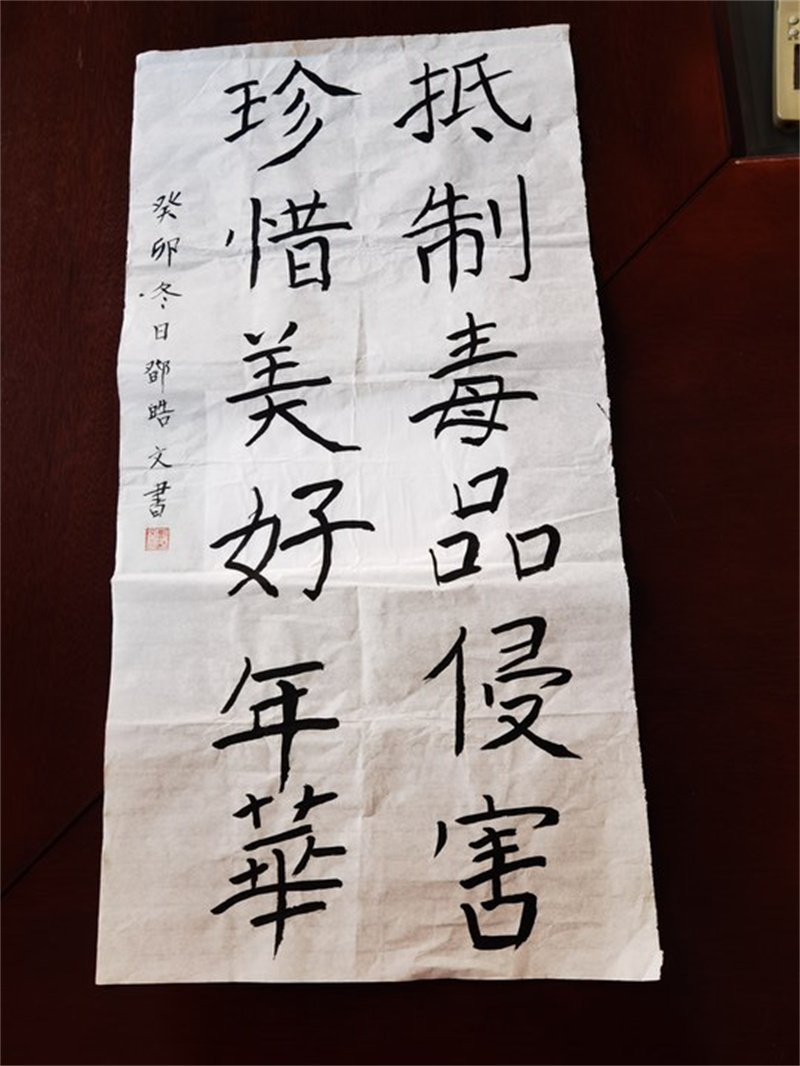 抵制毒品侵害
珍惜美好年華
癸卯冬日鄧皓文書